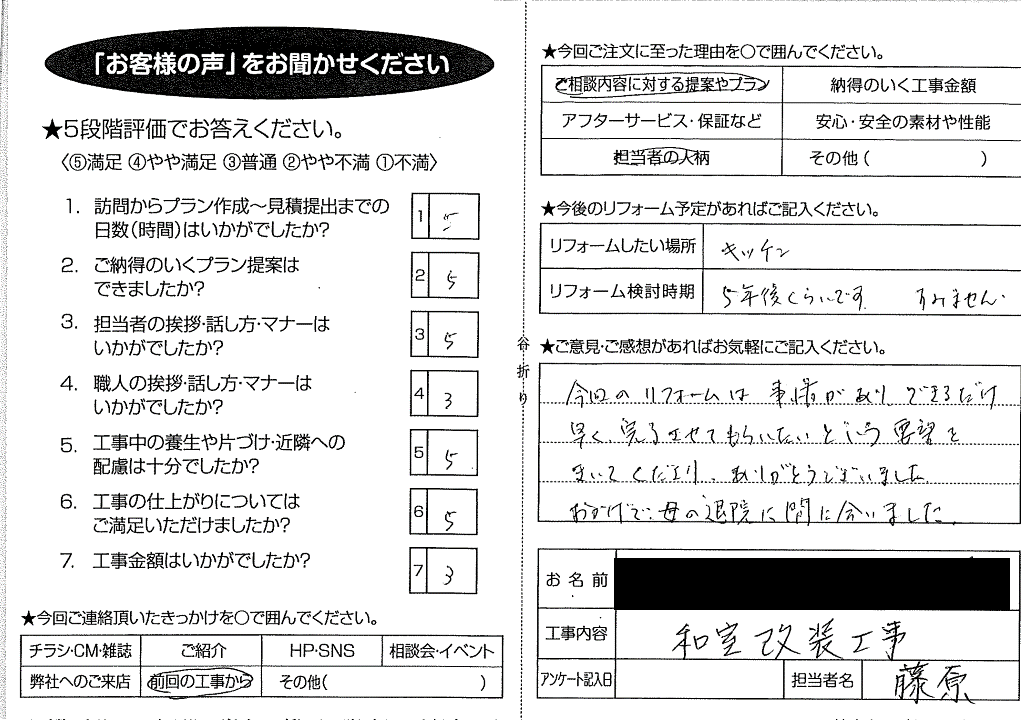 「お客様の声」をお聞かせください
★5段階評価でお答えください。
〈⑤満足 ④やや満足 ③普通 ②やや不満 ①不満〉
1. 訪問からプラン作成～見積提出までの
日数(時間)はいかがでしたか?
1 5
2. ご納得のいくプラン提案は
できましたか?
2 5
3. 担当者の挨拶・話し方・マナーは
いかがでしたか?
3 5
4. 職人の挨拶・話し方・マナーは
いかがでしたか?
4 3
5. 工事中の養生や片づけ・近隣への
配慮は十分でしたか?
5 5
6. 工事の仕上がりについては
ご満足いただけましたか?
6 5
7. 工事金額はいかがでしたか?
7 3
★今回ご連絡頂いたきっかけを○で囲んでください。
チラシ・CM・雑誌 ご紹介 HP・SNS 相談会・イベント
弊社へのご来店 前回の工事から その他( )
谷折り
★今回ご注文に至った理由を○で囲んでください。
ご相談内容に対する提案やプラン 納得のいく工事金額
アフターサービス・保証など 安心・安全の素材や性能
担当者の人柄 その他( )
★今後のリフォーム予定があればご記入ください。
リフォームしたい場所 キッチン
リフォーム検討時期 5年後くらいです すみません.
★ご意見・ご感想があればお気軽にご記入ください。
今回のリフォームは事情があり、できるだけ
早く、完了させてもらいたいという要望を
きいてくださり、ありがとうございました
おかげで、母の退院に間に合いました。
お名前
工事内容 和室改装工事
アンケート記入日 担当者名 藤原